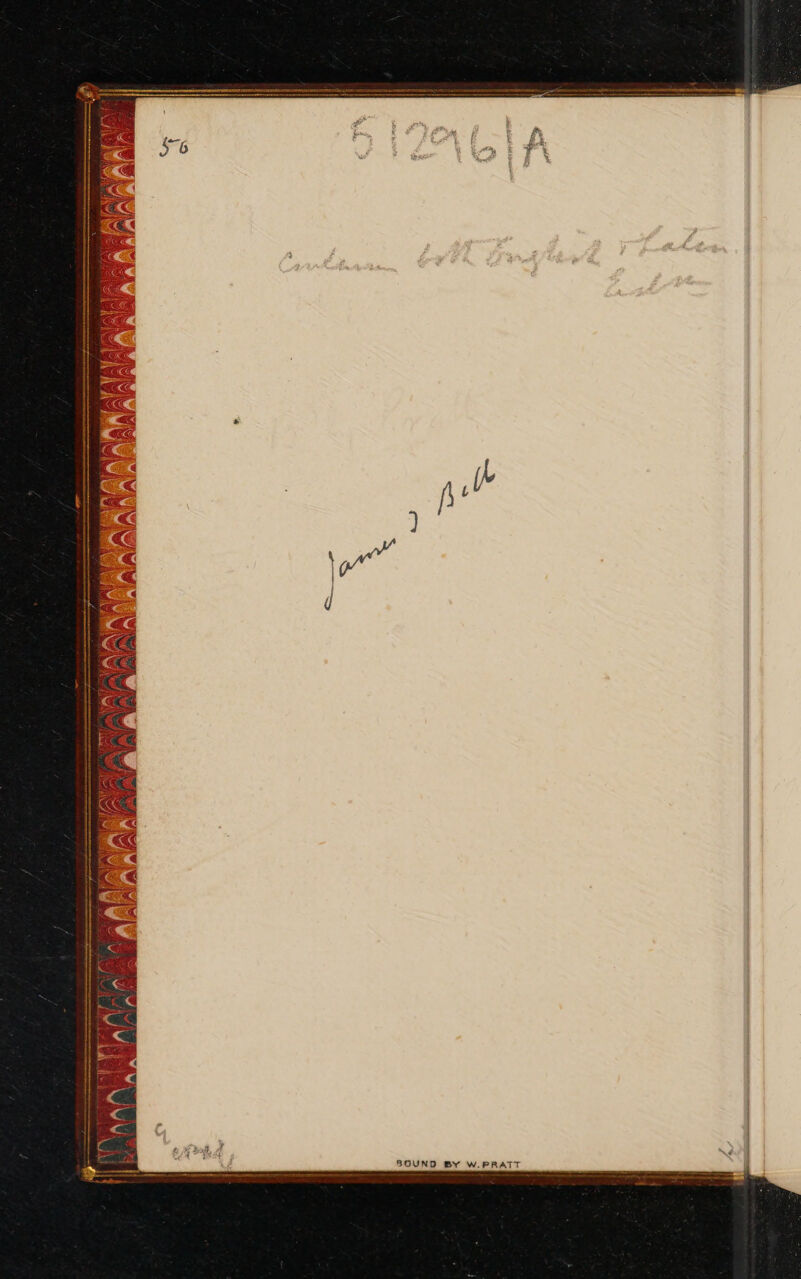 56
51296/A
Contains both English & Latin
Edn
James J Bell
BOUND BY W. PRATT